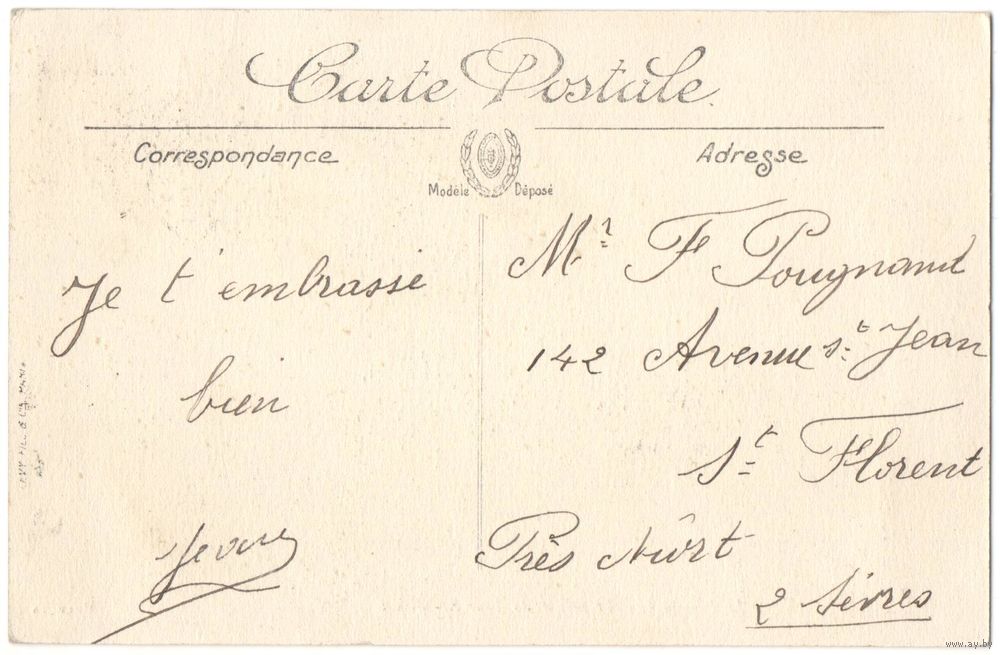 Carte Postale
Correspondance
Adresse
Modèle Déposé
Je t'embrasse
bien
Mr F Pougnand
142 Avenue St Jean
St Florent
Près Niort
2 Sèvres
www.ay.by